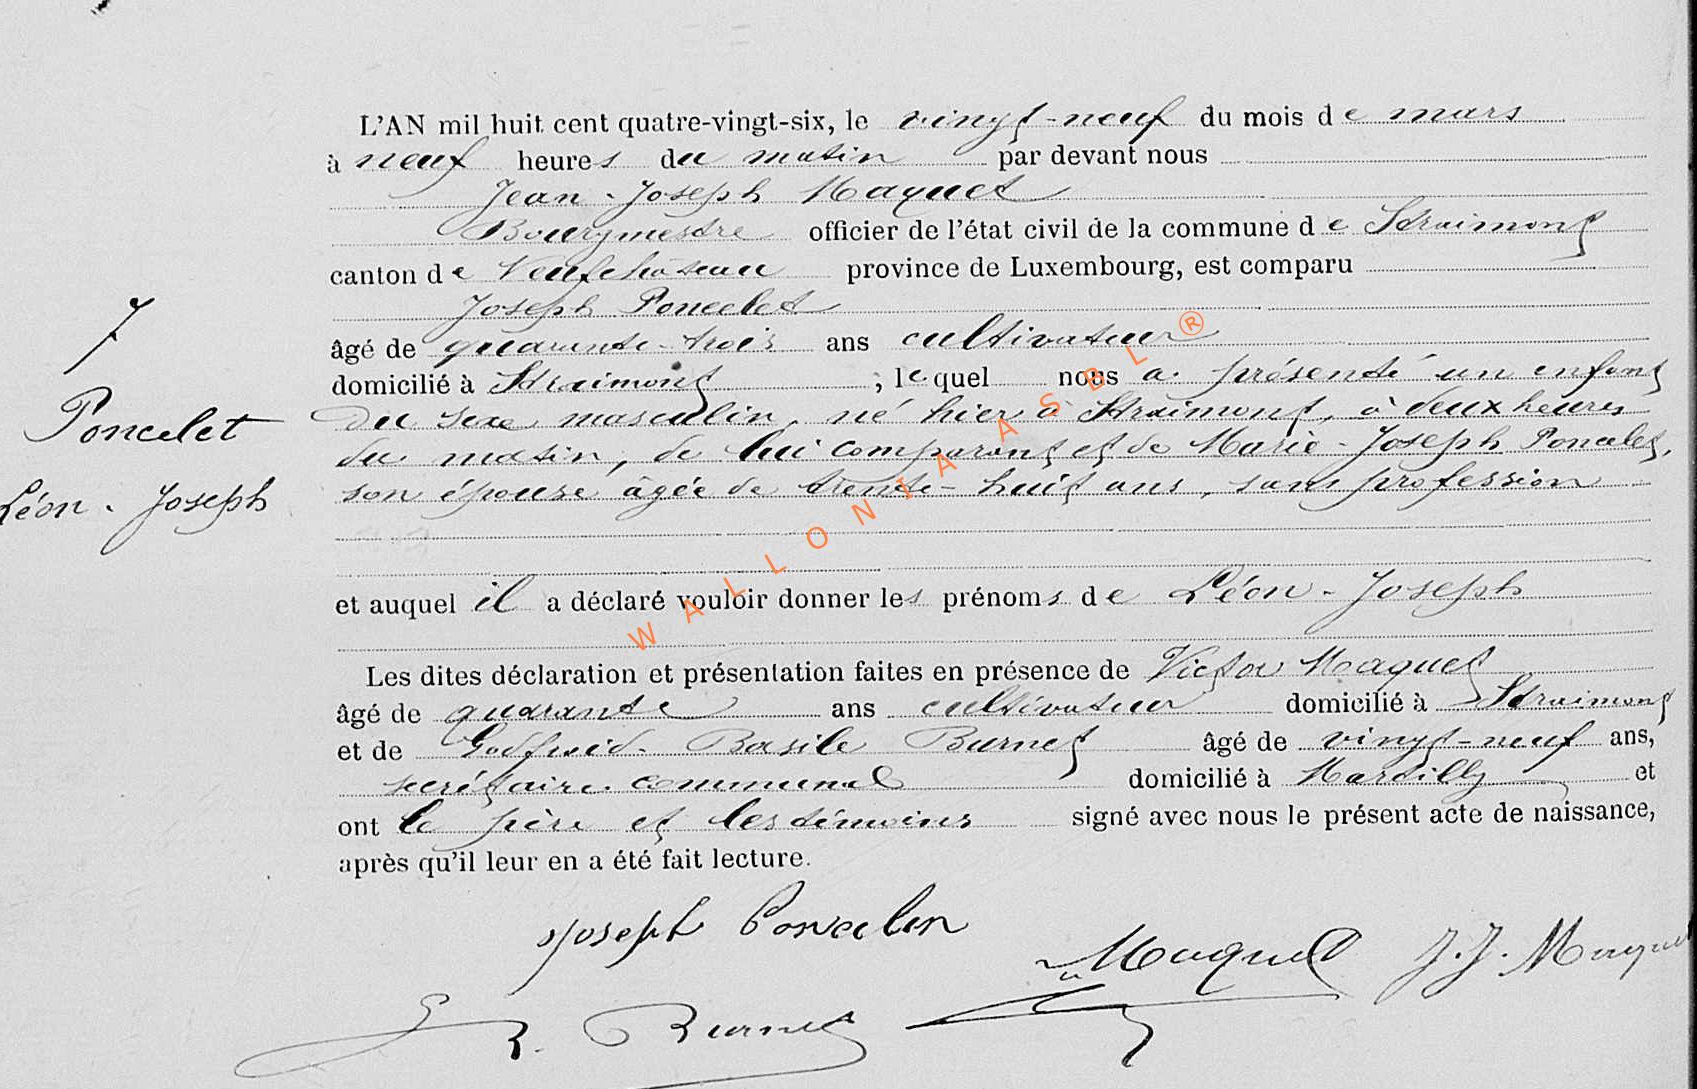 L'AN mil huit cent quatre-vingt-six, le vingt-neuf du mois de mars
à neuf heures du matin par devant nous
Jean-Joseph Maquet
Bourgmestre officier de l'état civil de la commune de Straimont
canton de Neufchâteau province de Luxembourg, est comparu
Joseph Poncelet
âgé de quarante-trois ans cultivateur
domicilié à Straimont ; lequel nous a présenté un enfant
du sexe masculin, né hier à Straimont, à deux heures
du matin, de lui comparant et de Marie-Joseph Poncelet,
son épouse âgée de trente-huit ans, sans profession
et auquel il a déclaré vouloir donner les prénoms de Léon-Joseph
Les dites déclaration et présentation faites en présence de Victor Maquet
âgé de quarante ans cultivateur domicilié à Straimont
et de Godfroid-Basile Burnet âgé de vingt-neuf ans,
secrétaire communal domicilié à Martilly et
ont le père et les témoins signé avec nous le présent acte de naissance,
après qu'il leur en a été fait lecture.
7
Poncelet
Léon-Joseph
Joseph Poncelet
Maquet
J. J. Maquet
Burnet
WALLONIA ASBL®